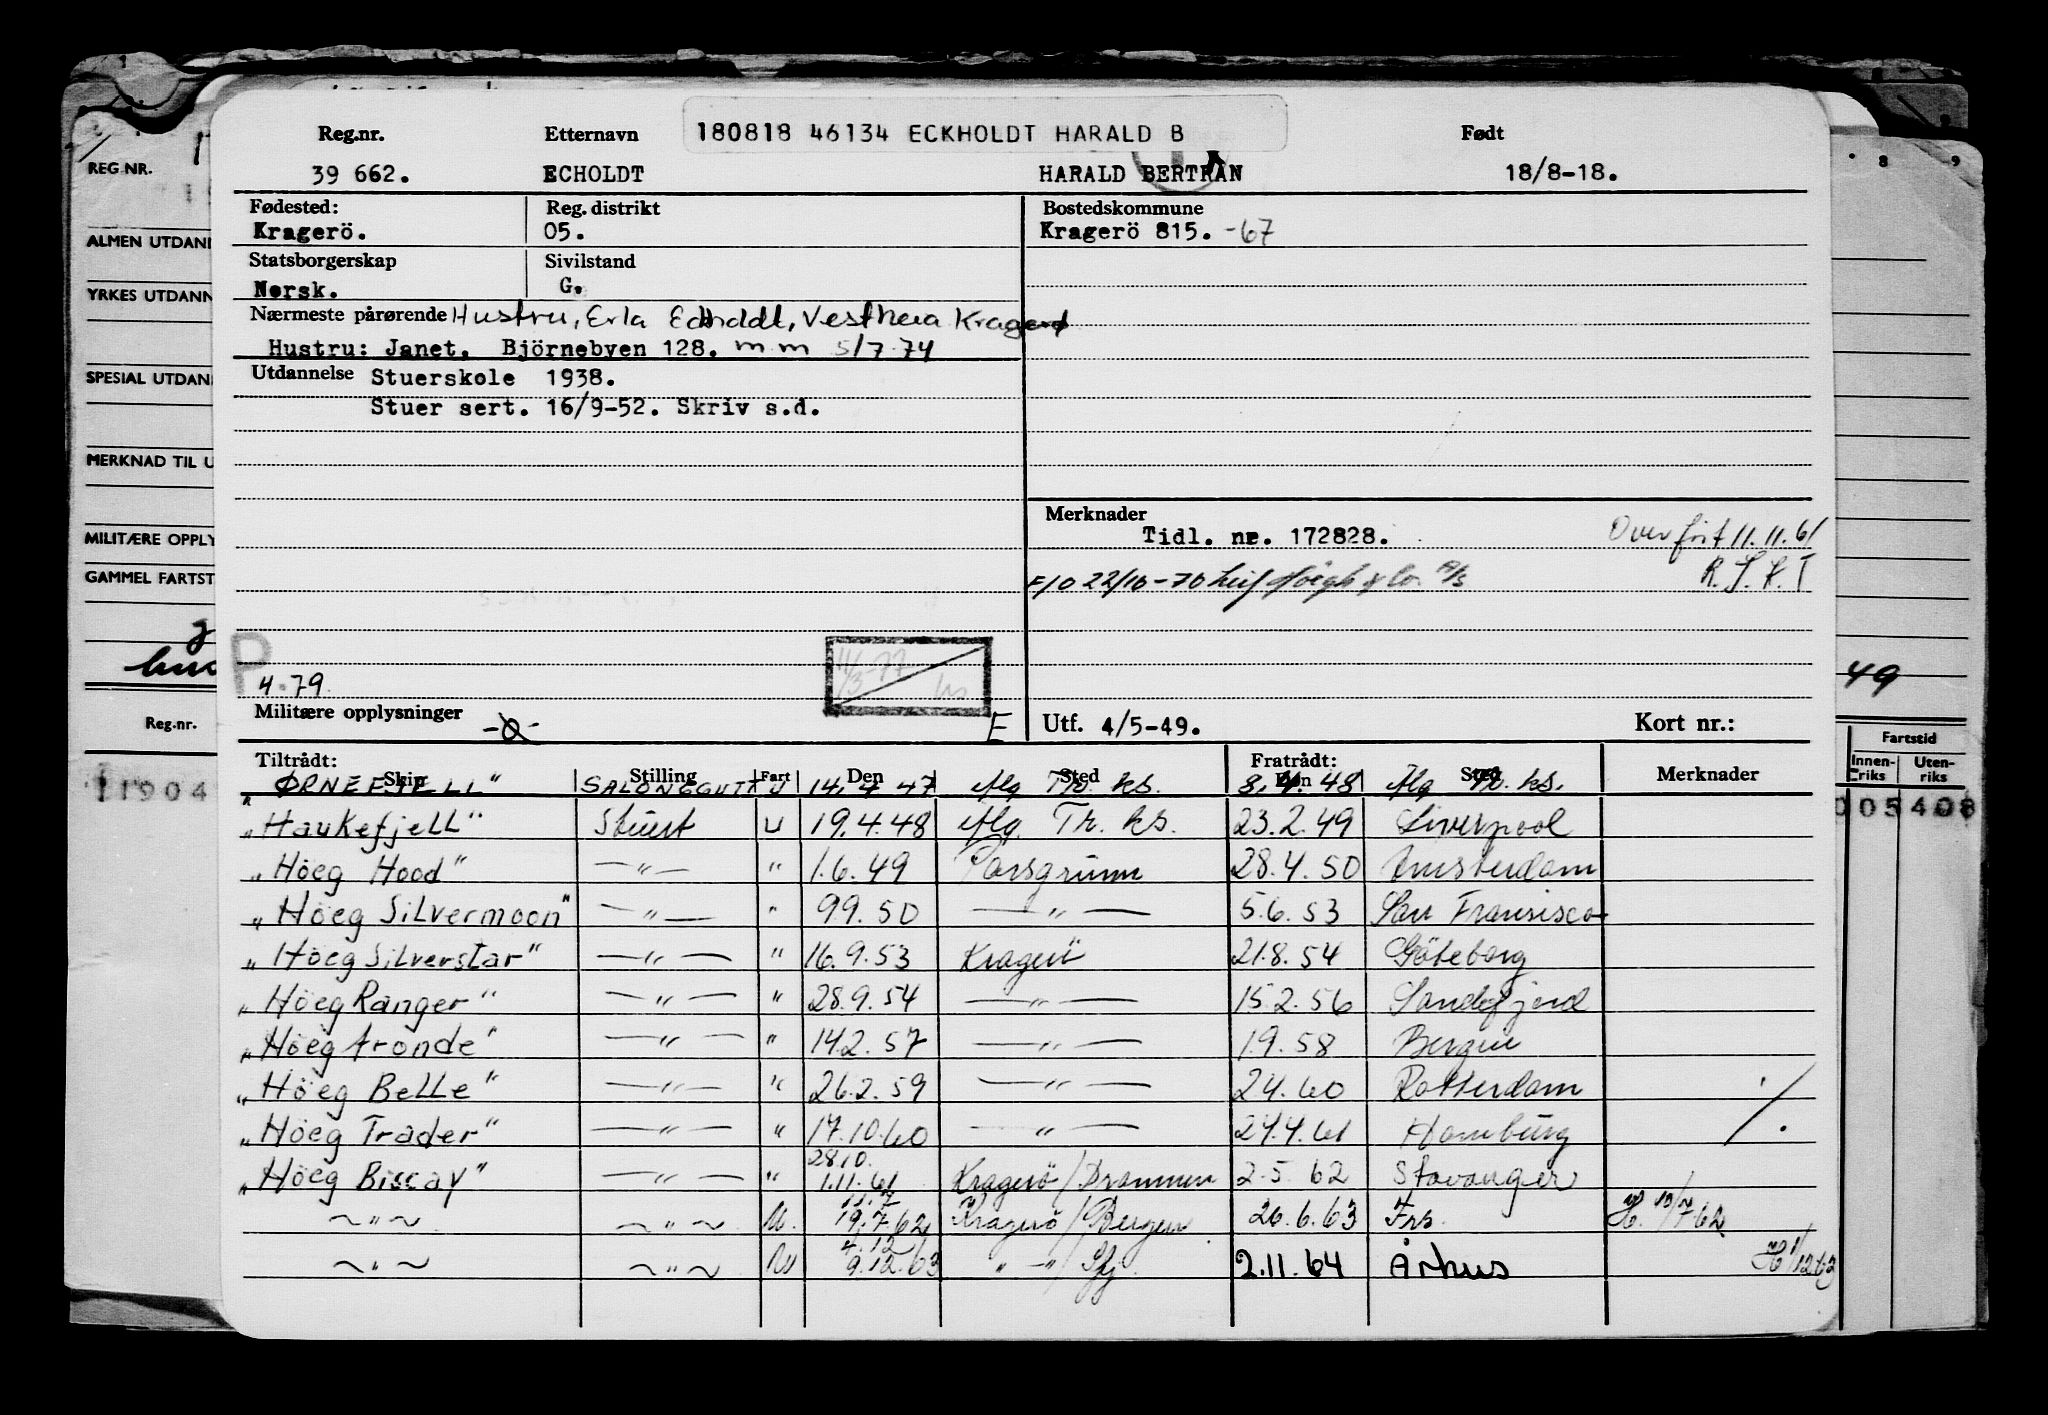 Reg.nr. Etternavn 180818 46134 ECKHOLDT HARALD B Født
39 662. ECHOLDT HARALD BERTRAN 18/8-18.
Fødested: Reg. distrikt Bostedskommune
Kragerö. 05. Kragerö 815. -67
Statsborgerskap Sivilstand
Norsk. G.
Nærmeste pårørende Hustru, Erla Echoldt, Vestheia Kragerø
Hustru: Janet. Björnebyen 128. mm 5/7.74
Utdannelse Stuerskole 1938.
Stuer sert. 16/9-52. Skriv s.d.
Merknader
Tidl. nr. 172828. Overført 11.11.61
F/O 22/10-70 Leif Höegh & Co. A/S
P
4.79.
11/3-77
Militære opplysninger E Utf. 4/5-49. Kort nr.:
Tiltrådt: Fratrådt:
Skip Stilling Fart Den Sted Den Sted Merknader
"ØRNEFJELL" SALONGGUTT U 14. 4 47 Alg Tr. ks. 8.4.48 Alg Tr. ks.
"Haukefjell" Stuert U 19.4.48 Alg Tr. ks. 23.2.49 Liverpool
"Höeg Hood" —"— " 1.6.49 Porsgrunn 28.4.50 Amsterdam
"Höeg Silvermoon" —"— " 9 9.50 —"— 5.6.53 San Fransisco
"Höeg Silverstar" —"— " 16.9.53 Kragerö 21.8.54 Göteborg
"Höeg Ranger" —"— " 28.9.54 —"— 15.2.56 Sandefjord
"Höeg Aronde" —"— " 14.2.57 —"— 1.9.58 Bergen
"Höeg Belle" —"— " 26.2.59 —"— 2.4.60 Rotterdam
"Höeg Trader" —"— " 17.10.60 —"— 27.4.61 Hamburg
28.10.
"Höeg Biscay" —"— " 1.11.61 Kragerö/Drammen 2.5.62 Stavanger
11.7
~"~ ~"~ U. 19.7.62 Kragerö/Bergen 26.6.63 Frs. 10/7 62
4.12
~"~ ~"~ 9.12.63 " —"/ Sfj. 2.11.64 Århus 1/12 63
REG NR.
ALMEN UTDAN
YRKES UTDANN
SPESIAL UTDAN
MERKNAD TIL U
MILITÆRE OPPLY
GAMMEL FARTST
Reg.nr.
11904
8 9
49
Fartstid
Innen-riks Uten-riks
005408